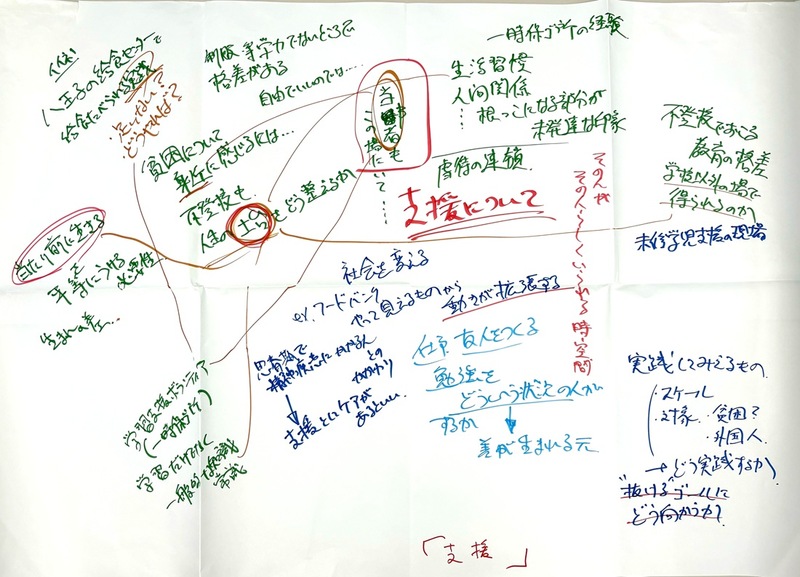 八王子の給食センターで
足りない?
どうやれば?
制服…等学力でないところで
格差がある
自由でいいのでは……
貧困について
身近に感じるには…
不登校も
人生の土台をどう整えるか
当事者も
この場にいて……
一時保護所の経験
生活習慣
人間関係
…… 根っこになる部分が
未発達な段階
虐待の連鎖
支援について
その人が
その人らしくいられる時・空間
不登校でおこる
教育の格差
学校以外の場で
得られるのか
未修学児支援の現場
当たり前に生きる
を
平等にうける
必要性
生まれの差…
社会を変える
ex. フードバンク
やって見えるものから
動きが拡張する
思春期で
精神疾患にかかる人
との
かかわり
支援というケアが
あるといい
仕事 友人をつくる
勉強を
どういう状況の人が
するか
差が生まれる元
学習支援ボランティア
(一時保護所)
学習だけでなく
一般的な知識
常識
実践してみえるもの
・スケール
・対象 ・貧困?
・外国人
→どう実践するか
"抜ける"ゴールに
どう向かうか?
「支援」